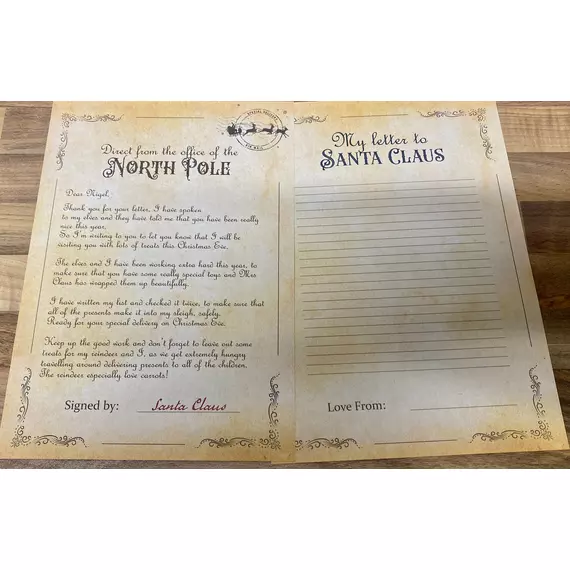 Direct from the office of the
NORTH POLE
Dear Nigel,
Thank you for your letter. I have spoken
to my elves and they have told me that you have been really
nice this year.
So I'm writing to you to let you know that I will be
visiting you with lots of treats this Christmas Eve.
The elves and I have been working extra hard this year, to
make sure that you have some really special toys and Mrs
Claus has wrapped them up beautifully.
I have written my list and checked it twice, to make sure that
all of the presents make it into my sleigh, safely.
Ready for your special delivery on Christmas Eve.
Keep up the good work and don't forget to leave out some
treats for my reindeer and I, as we get extremely hungry
travelling around delivering presents to all of the children.
The reindeer especially love carrots!
Signed by: Santa Claus
SPECIAL DELIVERY
My letter to
SANTA CLAUS
Love From: